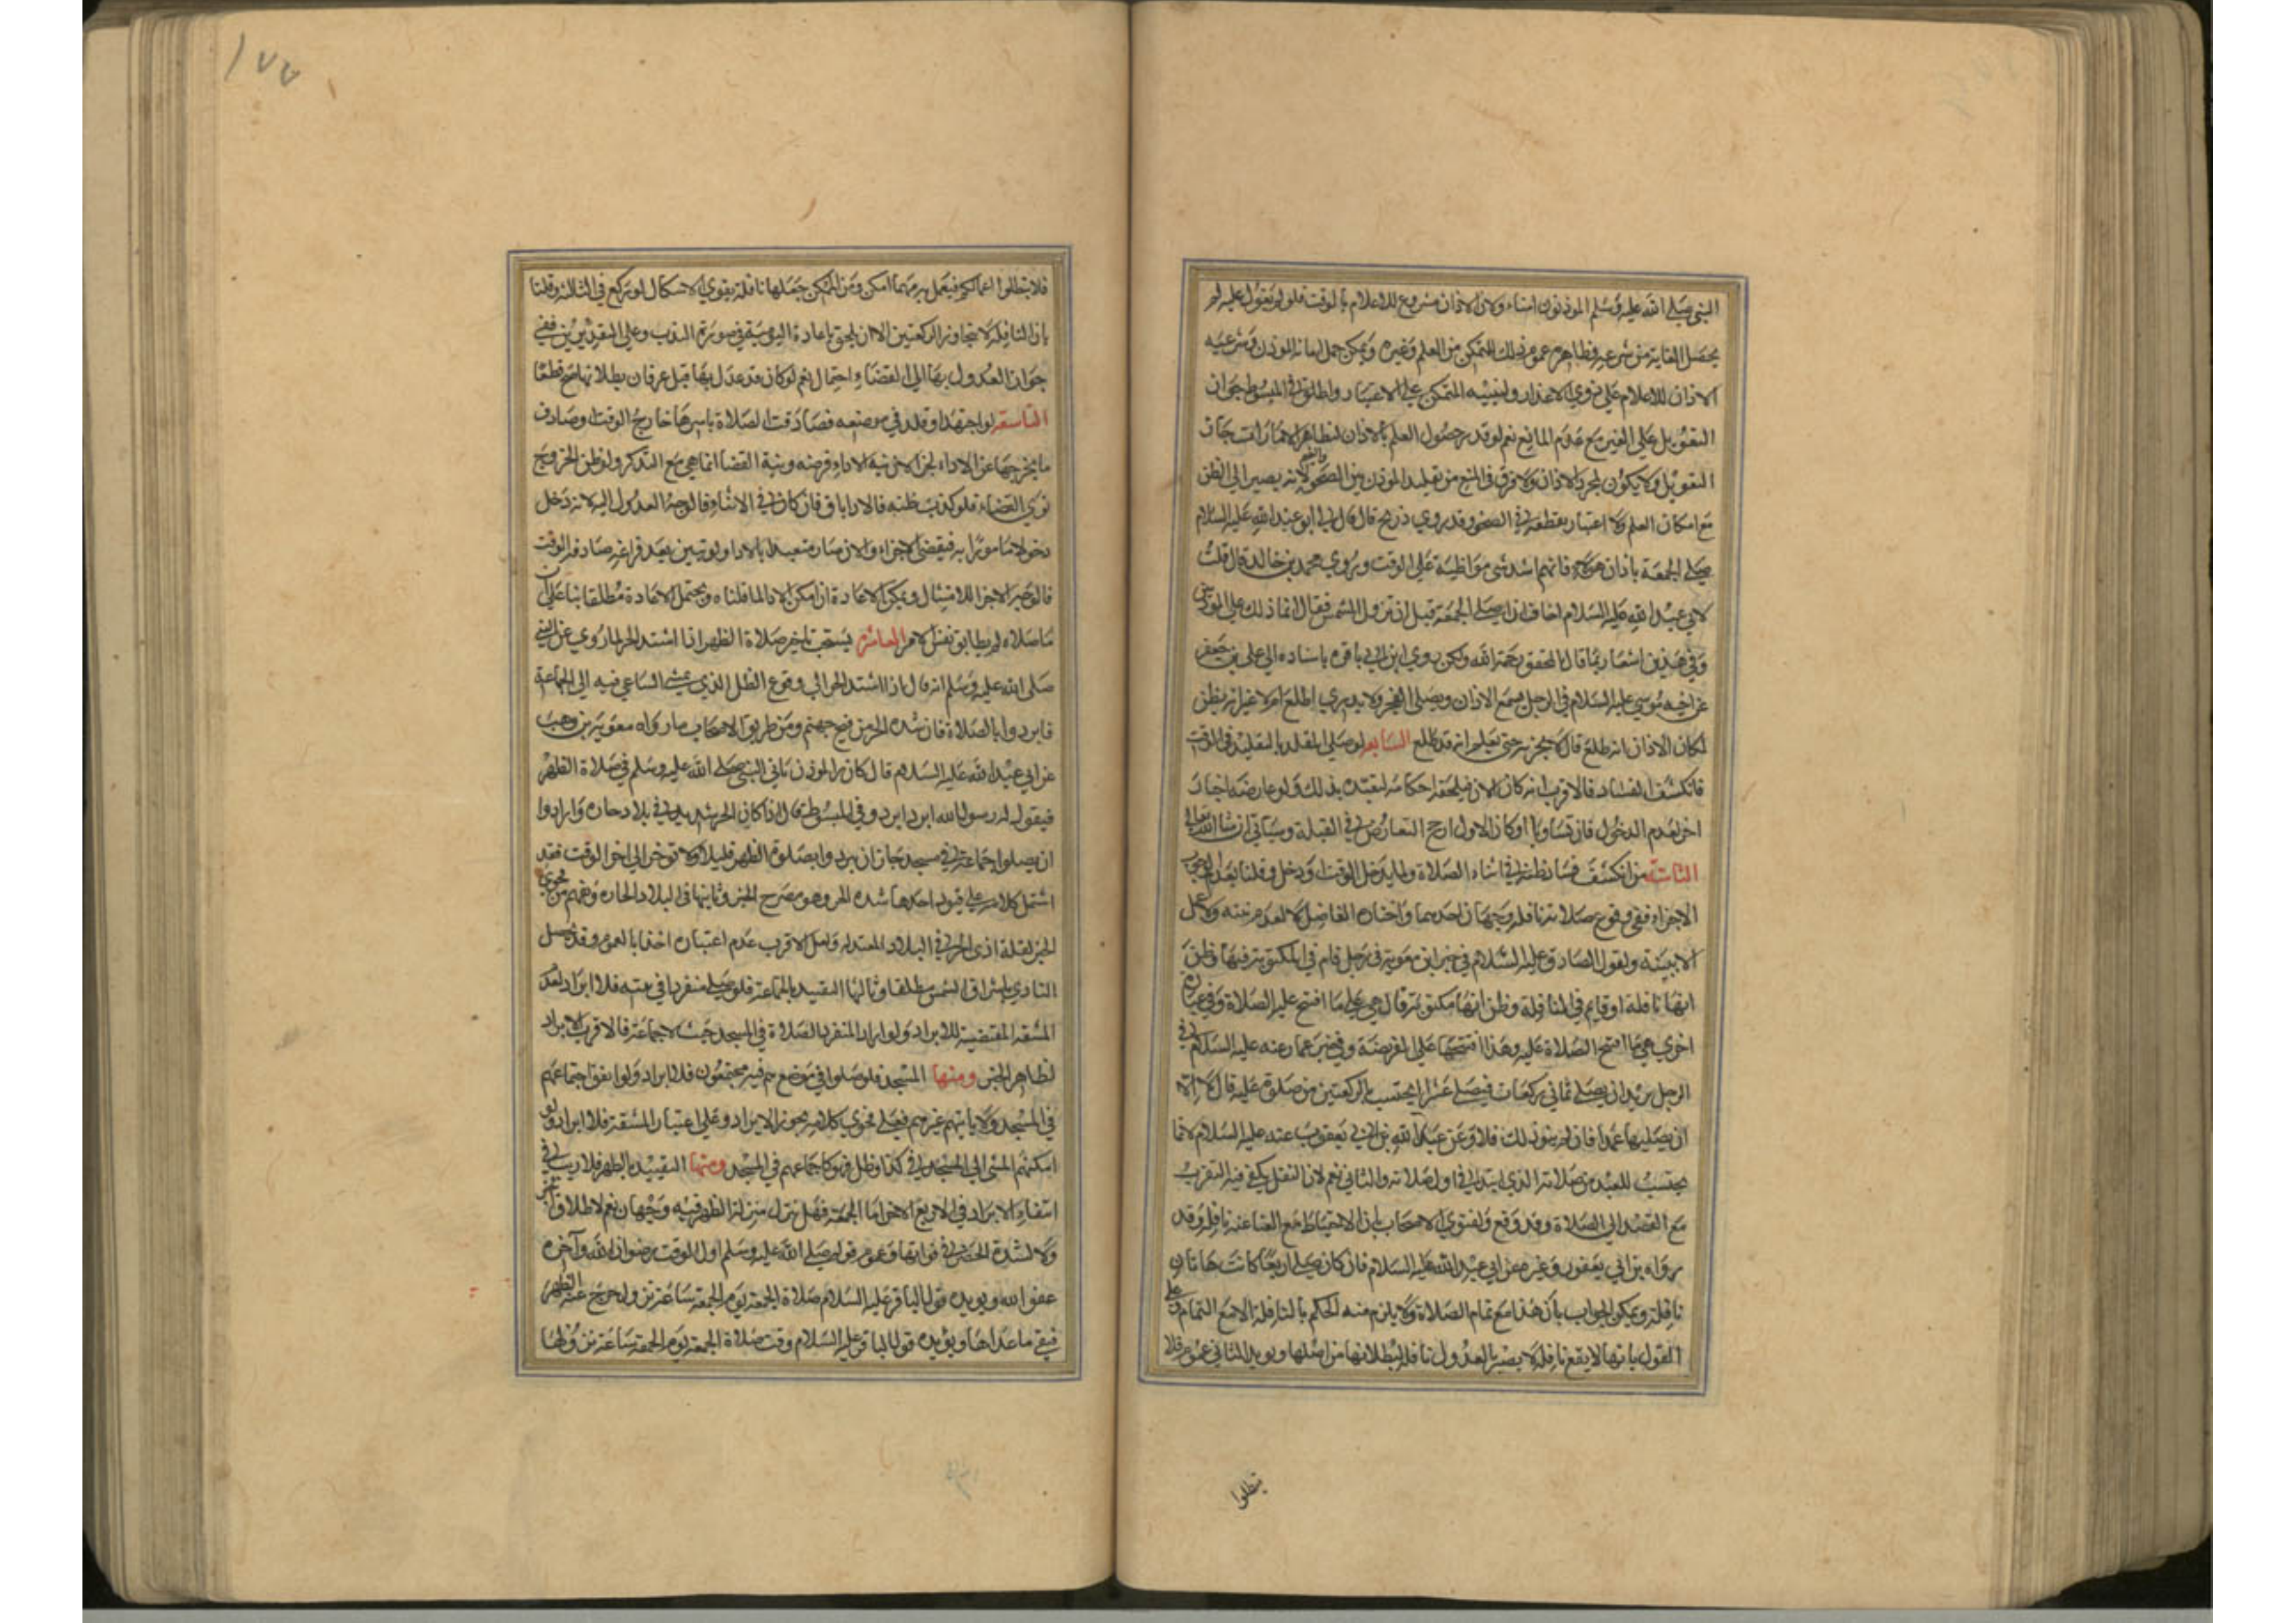 النبي صلى الله عليه وسلم المؤذنون امناء ولان الاذان مشروع للاعلام بالوقت فلو لم يعول عليه لم
يحصل الغاية من شرعيه فظاهره عموم ذلك للتمكن من العلم وغيره ويمكن حمل امانة المؤذن وشرعيه
الاذان للاعلام على ذوي الاعذار ولتنبيه المتمكن على الاعتبار واطلق في المبسوط جواز
التعويل على الغير مع عدم المانع نعم لو قدر حصول العلم بالاذان لتظاهر الامارات جاز
التعويل ولا يكون لمجرد الاذان ولا فرق في المنع من تقليد المؤذن بين الصحو والغيم لانه يصير الى الظن
مع امكان العلم ولا اعتبار بقطعه في الصحو وقد روى ذريح قال قال لي ابو عبد الله عليه السلام
صلى الجمعة باذان هؤلاء فانهم اشد شي مواظبة على الوقت وروى محمد بن خالد قال قلت
لابي عبد الله عليه السلام اخاف ان اصلى الجمعة قبل ان تزول الشمس فقال انما ذلك على المؤذنين
وفي هذين اشعار بما قال المحقق رحمه الله ولكن روى ابن ابي قره باسناده الى علي بن جعفر
عن اخيه موسى عليه السلام في الرجل يسمع الاذان ويصلى الفجر ولا يدري اطلع ام لا غير انه يظن
لمكان الاذان انه طلع قال لا يجزيه حتى يعلم انه قد طلع السابعه لو صلى المقلد بالتقليد في الوقت
فانكشف الفساد فالاقرب انه كالظان فيلحقه احكامه لتعبده بذلك ولو عارضه اخبار
اخر بعدم الدخول فان تساويا او كان الاول ارجح التعارض في القبلة وسياتي ان شا الله تعالى
الثامنة من انكشف فساد ظنه في اثناء الصلاة ولما يدخل الوقت او دخل وقلنا بعدم
الاجزاء ففي وقوع صلاته نافله وجهان احدهما واختاره الفاضل لا لعدم نيته ولا عمل
الا بنية ولقول الصادق عليه السلام في خبر ابن معوية في رجل قام في المكتوبة فيها وظن
انها نافلة او قام في النافلة وظن انها مكتوبة قال هي على ما افتتح عليه الصلاة وفي عبارة
اخرى هي ما افتتح الصلاة عليه وهذا افتتحها على الفريضة وفي خبر عمار عنه عليه السلام في
الرجل يريد ان يصلى ثماني ركعات فيصلى عشرا ايحتسب بالركعتين من صلاة عليه قال لا الا
ان يصليها عمدا فان لم ينو ذلك فلا وعن عبد الله بن ابي يعفور عنه عليه السلام انما
يحتسب للعبد من صلاته الذي ابتدا في اول صلاته والثاني نعم لان النفل يكفي فيه التقرب
مع القصد الى الصلاة وقد وقع ولفتوى الاصحاب بان الاحتياط مع الغنا عنه نافله وقد
رواه بن ابي يعفور وغيره عن ابي عبد الله عليه السلام فان كان صلى اربعا كانت هاتان
نافلة ويمكن الجواب بان هذا مع تمام الصلاة ولا يلزم منه الحكم بالنافلة الا مع التمام وعلى
القول بانها لا يقع نافلة لا يصير بالعدول نافلة لبطلانها من اصلها ويؤيد الثاني عموم فلا
يبطلوا
١٧٧
فلا يبطلوا اعمالكم فيعمل به مهما امكن ومن الممكن جعلها نافلة يقوى الاشكال لو ركع في الثالثة وقلنا
بان النافلة لا يتجاوز الركعتين الا ان يلحق باعادة اليومية في صورة الندب وعلى التقديرين ففي
جواز العدول بها الى القضاء احتمال نعم لو كان قد عدل بها قبل عرفان بطلانها صح قطعا
التاسعة لو اجتهد او قلد في موضعه فصادفت الصلاة باسرها خارج الوقت وصادف
ما يخرجها عن الاداء لجزا لان نية الاداء فرضه ونية القضا انما هي مع التذكر ولو ظن الخروج
نوى القضاء فلو كذب ظنه فالادا باق فان كان في الاثناء فالوجه العدول اليه لانه دخل
دخولا مامورا به فيقضى الاجزاء والان صار متعبدا بالادا ولو تبين بعد فراغه مصادفة الوقت
فالوجه الاجزا للامتثال ويمكن الاعادة ان امكن الادا لما قلناه ويحتمل الاعادة مطلقا بنا على ان
ما صلاه لم يطابق نفس الامر العاشره يستحب تاخير صلاة الظهر اذا اشتد الحر لما روي عن النبي
صلى الله عليه وسلم انه قال اذا اشتد الحر اي وقوع الظل الذي يمشي الساعي فيه الى الجماعة
فابردوا بالصلاة فان شدة الحر من فيح جهنم ومن طريق الاصحاب ما رواه معوية بن وهب
عن ابي عبد الله عليه السلام قال كان المؤذن ياتي النبي صلى الله عليه وسلم في صلاة الظهر
فيقول له رسول الله ابرد ابرد وفي المبسوط قال اذا كان الحر شديدا في بلاد حاره وارادوا
ان يصلوا جماعة في مسجد جاز ان يبردوا بصلوة الظهر قليلا ولا توخر الى اخر الوقت فقد
اشتمل كلامه على قيود احدها شده الحر وهو مصرح الخبر وثانيها في البلاد الحاره وفهم من فحوى
الخبر لقلة اذى الحر في البلاد المعتدله ولعل الاقرب عدم اعتباره اخذا بالعموم وقد يحصل
التاذي باشراق الشمس مطلقا وثالثها التقييد بالجماعة فلو صلى منفردا في بيته فلا ابراد لعدم
المشقه المقتضية للابراد ولو اراد المنفرد الصلاة في المسجد حيث لا جماعة فالاقرب الابراد
لظاهر الخبر ومنها المسجد فلو صلوا في موضع هم فيه مجتمعون فلا ابراد ولو اتفق اجتماعهم
في المسجد ولا ياتيهم غيرهم فعلى فحوى كلامه يجوز الابراد وعلى اعتبار المشقة فلا ابراد ولو
امكنهم المشي الى المسجد في كن او ظل فهو كاجتماعهم في المسجد ومنها التقييد بالظهر فلا ريب في
انتفاء الابراد في الاربع الاخر اما الجمعة فهل تنزل منزلة الظهر فيه وجهان نعم لاطلاق الخبر
ولا لشدة الخطر في فواتها وعموم قوله صلى الله عليه وسلم اول الوقت رضوان الله وآخره
عفو الله ويؤيده قول الباقر عليه السلام صلاة الجمعة يوم الجمعة ساعة تزول وخرج عنه الظهر
فبقي ما عداها ويؤيده قول الباقر عليه السلام وقت صلاة الجمعة يوم الجمعة ساعة تزولها